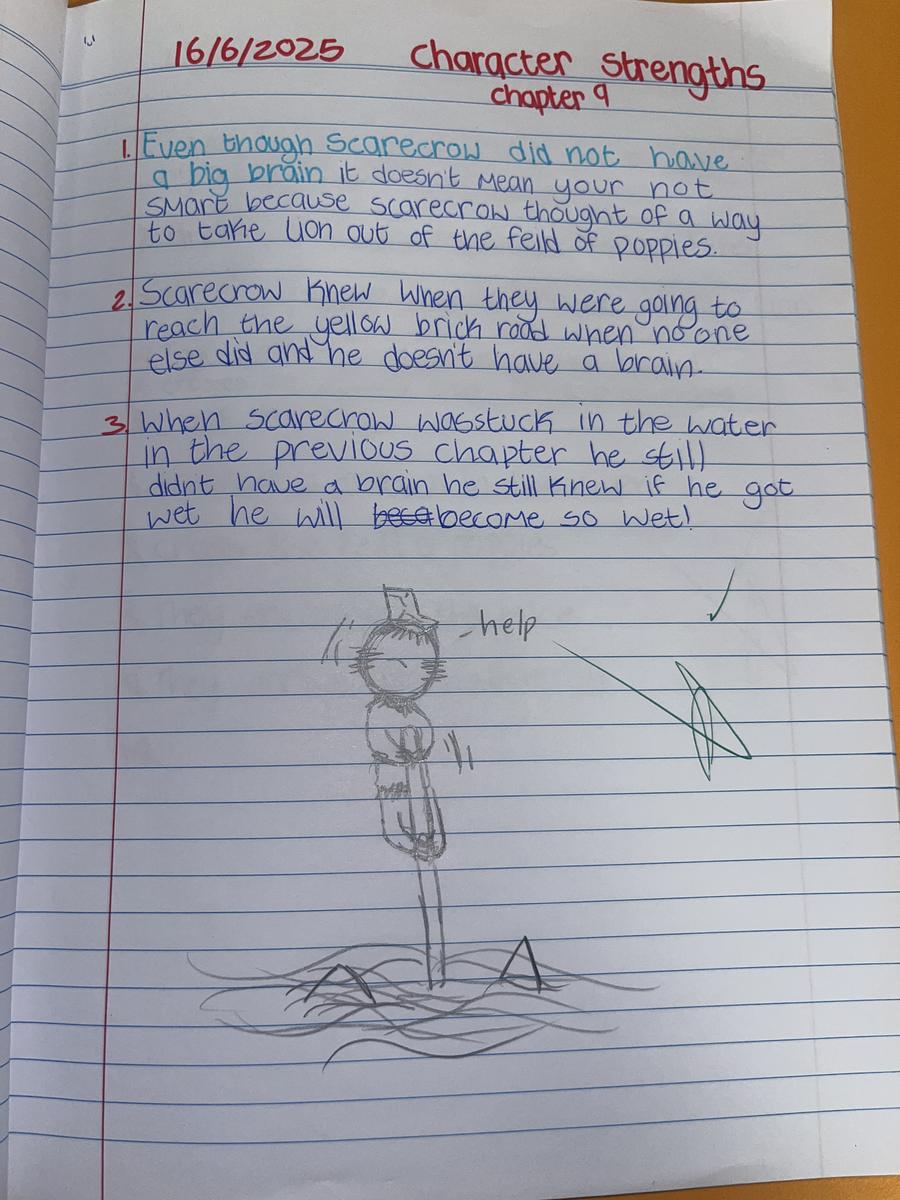 16/6/2025 Character Strengths
chapter 9
1. Even though Scarecrow did not have
a big brain it doesn't mean your not
smart because scarecrow thought of a way
to take lion out of the feild of poppies.
2. Scarecrow knew when they were going to
reach the yellow brick road when no one
else did and he doesn't have a brain.
3. When scarecrow wasstuck in the water
in the previous chapter he still
didnt have a brain he still knew if he got
wet he will become so wet!
help